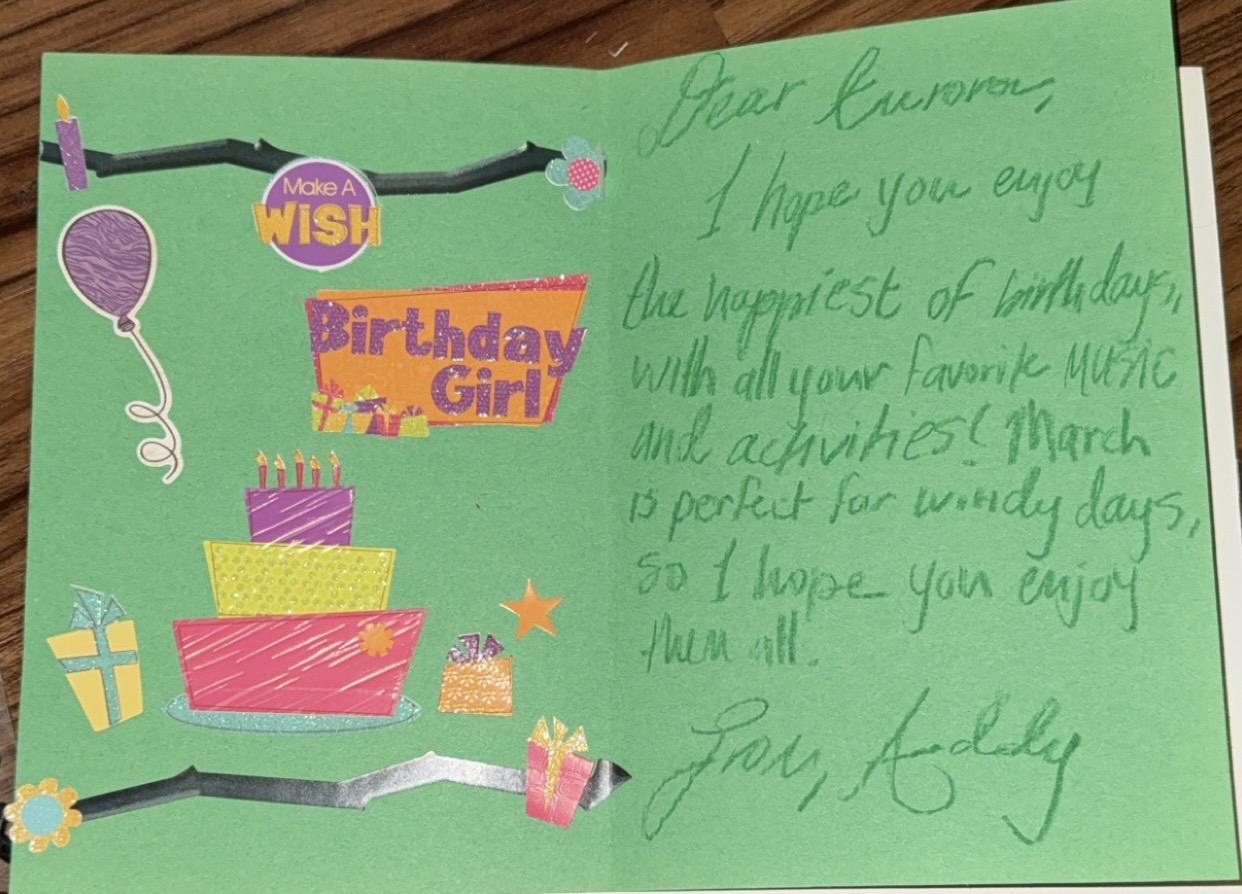 Make A
WISH
Birthday
Girl
Dear Aurora,
I hope you enjoy
the happiest of birthdays,
with all your favorite MUSIC
and activities! March
is perfect for windy days,
so I hope you enjoy
them all.
Love, Addy